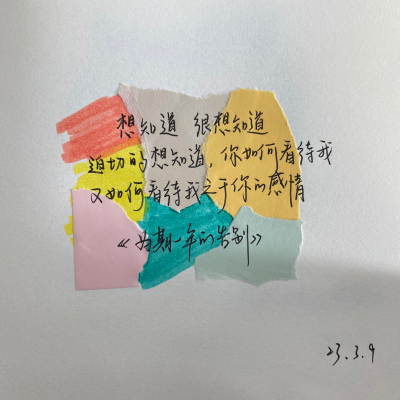 想知道 很想知道
迫切的想知道，你如何看待我
又如何看待我之于你的感情
《为期一年的告别》
23.3.9